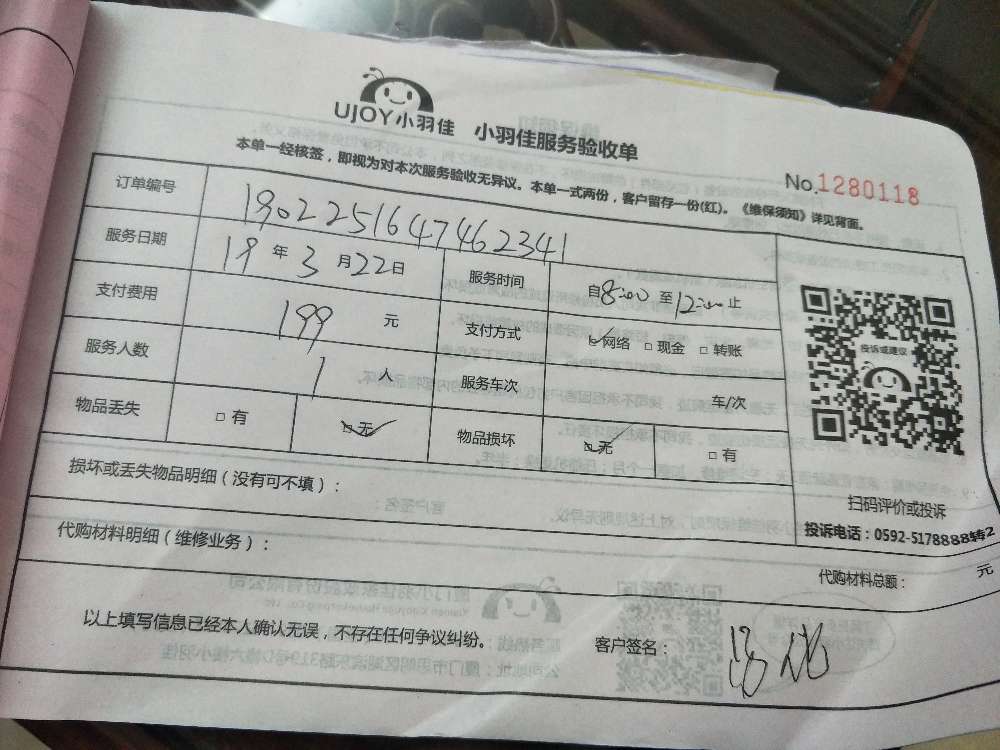 UJOY小羽佳 小羽佳服务验收单
本单一经核签，即视为对本次服务验收无异议。本单一式两份，客户留存一份(红)。《维保须知》详见背面。
No.1280118
订单编号 190225164747462341
服务日期 19年3月22日 服务时间 自8:00至12:00止
支付费用 199元 支付方式 ☑网络 □现金 □转账
服务人数 1人 服务车次 车/次
物品丢失 □有 ☑无 物品损坏 ☑无 □有
投诉或建议
扫码评价或投诉
投诉电话：0592-5178888转2
损坏或丢失物品明细（没有可不填）：
代购材料明细（维修业务）：
代购材料总额： 元
以上填写信息已经本人确认无误，不存在任何争议纠纷。 客户签名：